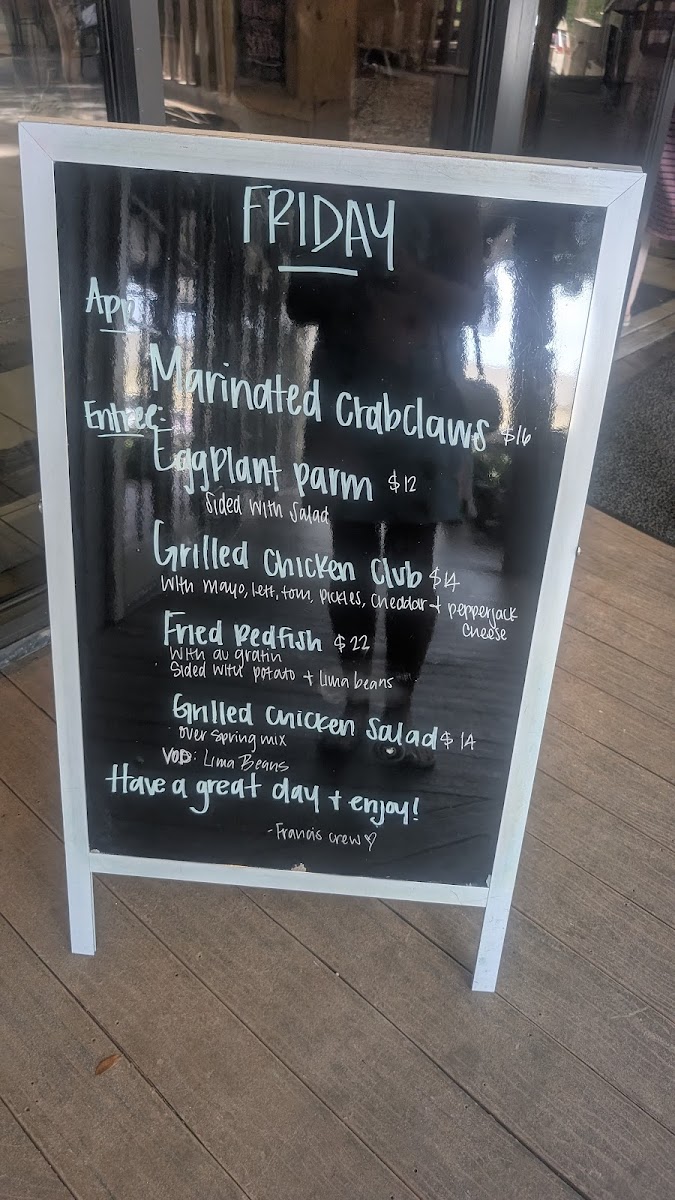 FRIDAY
App:
Marinated Crabclaws $16
Entree:
Eggplant parm $12
Sided with salad
Grilled Chicken Club $14
With mayo, lett, tom, pickles, cheddar + pepperjack
cheese
Fried Redfish $22
With au gratin
Sided with potato + lima beans
Grilled Chicken Salad $14
over spring mix
VOD: Lima Beans
Have a great day + enjoy!
-Francis crew ♡